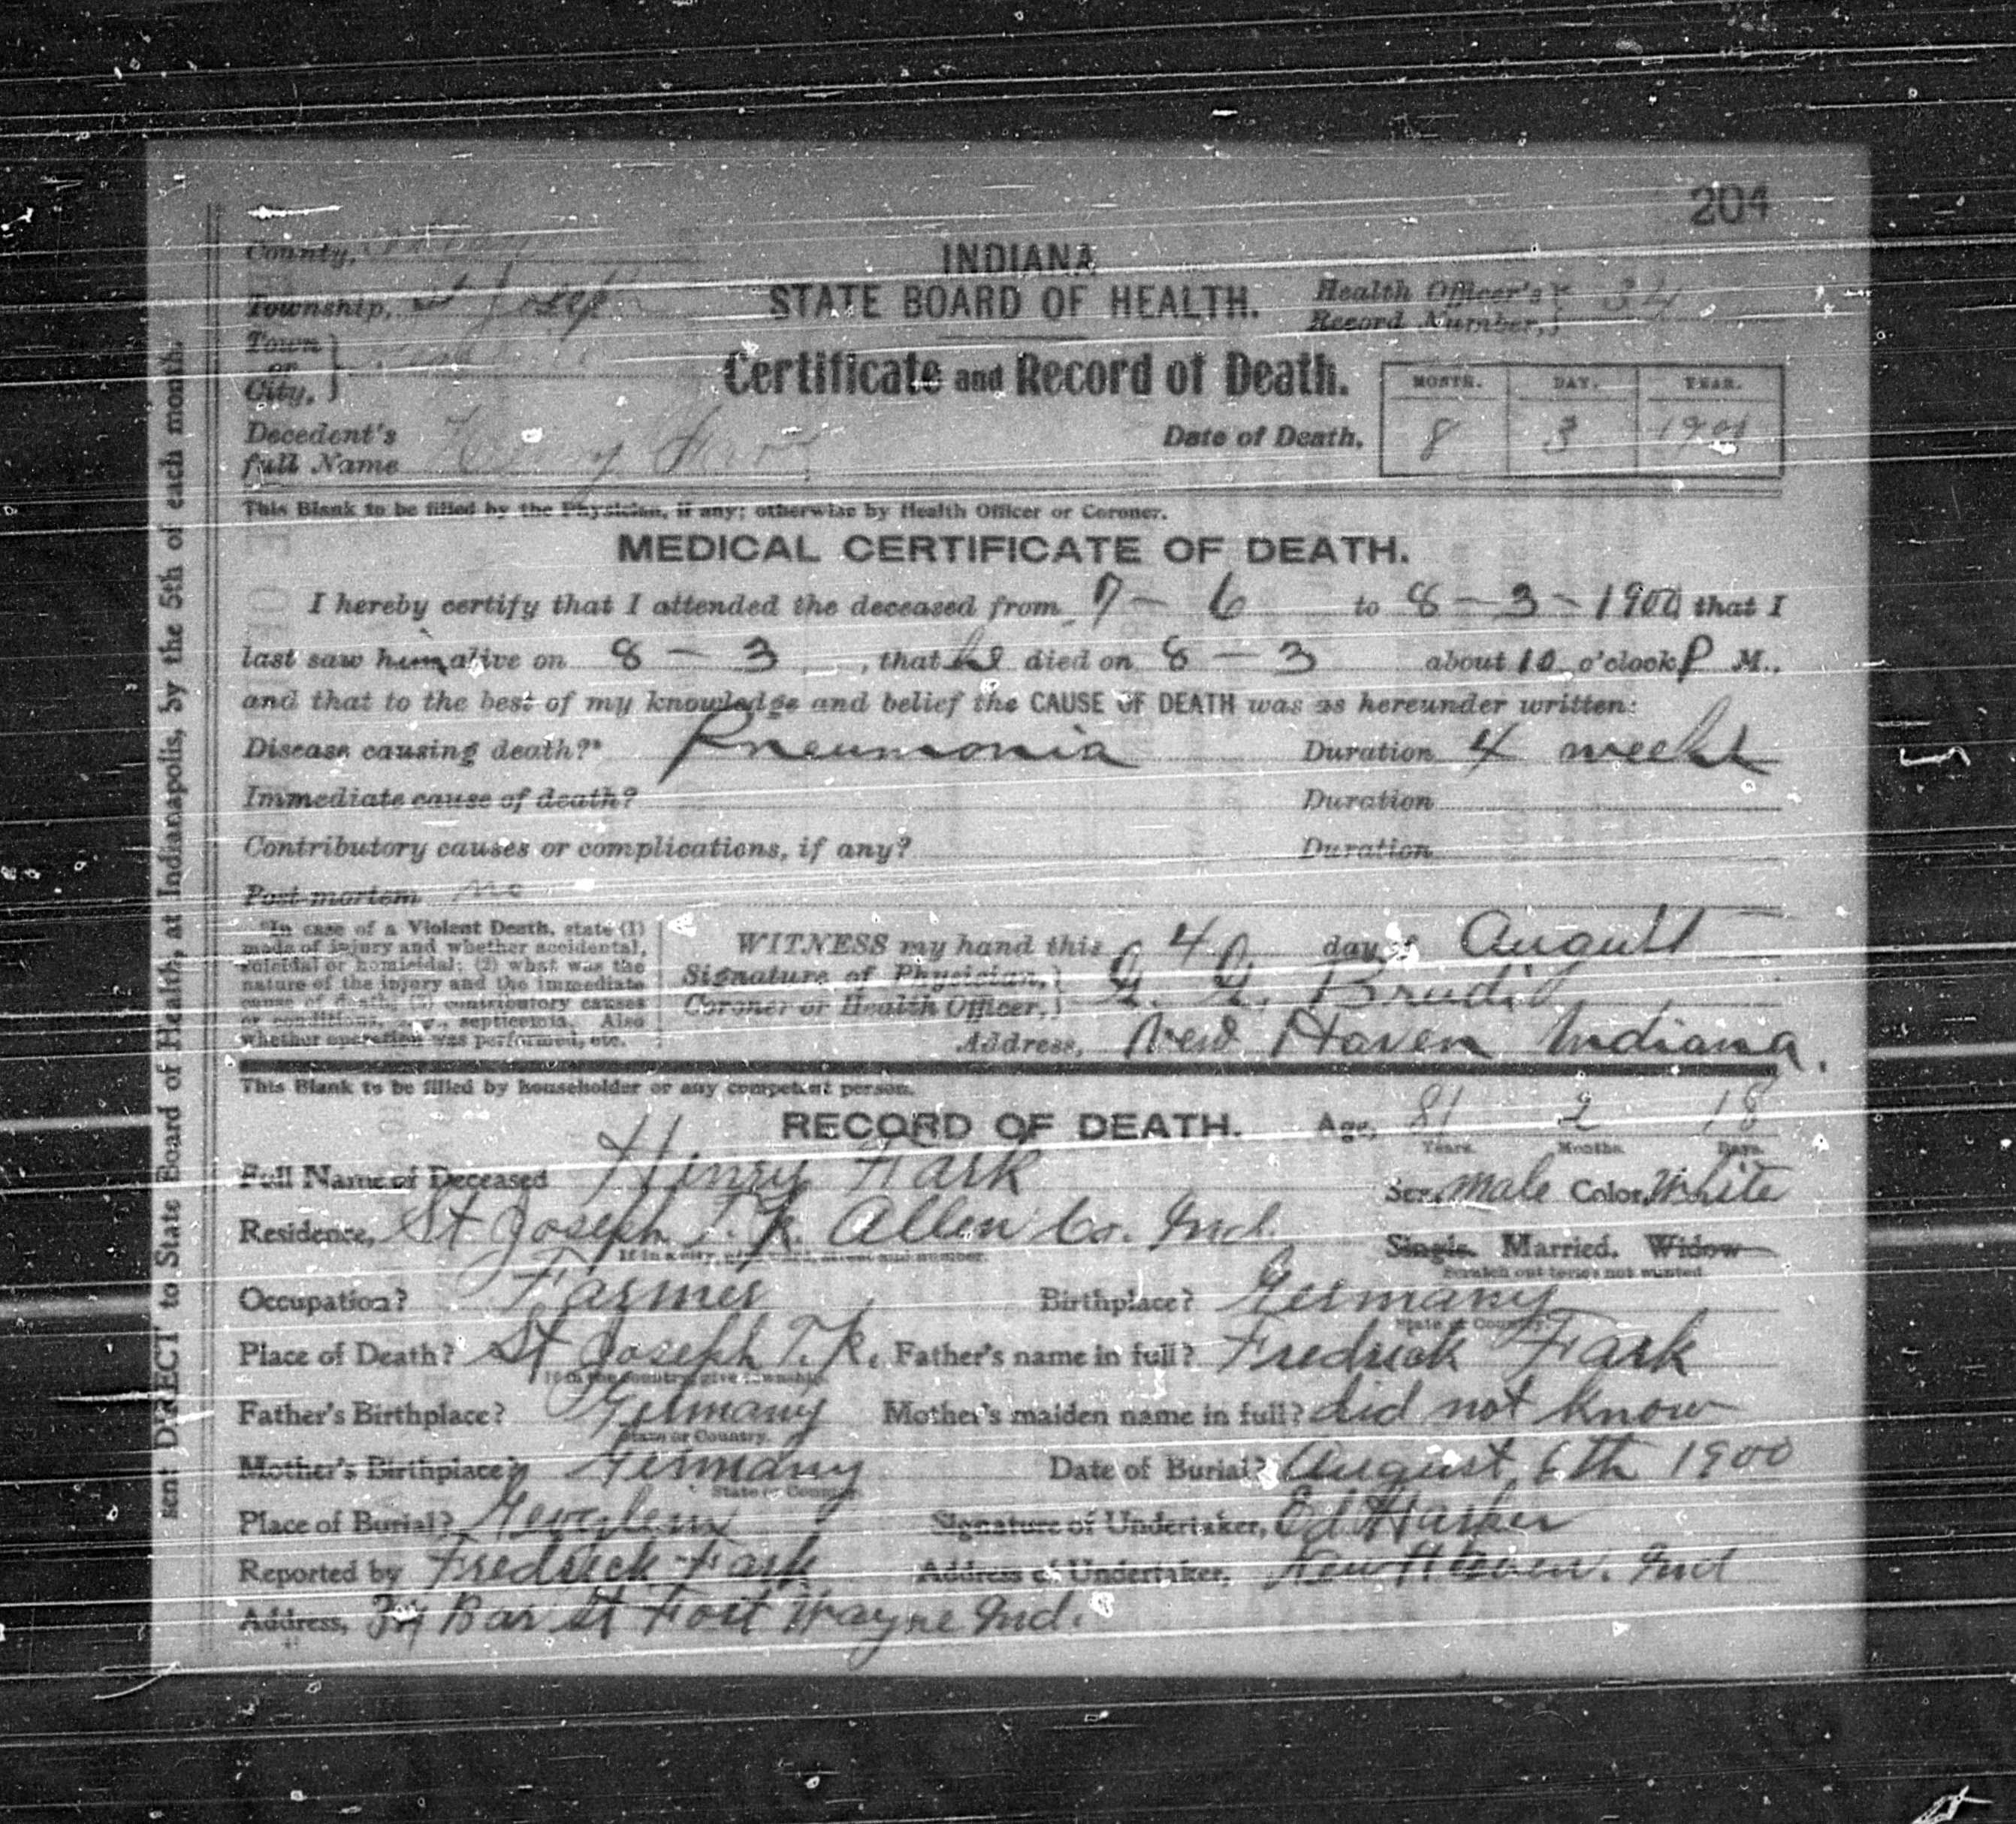 204
County,
INDIANA
Township, St Joseph
STATE BOARD OF HEALTH.
Health Officer's Record Number, 34
Town or City,
Certificate and Record of Death.
MONTH. DAY. YEAR.
Decedent's full Name Henry
Date of Death, 8 3 1900
This Blank to be filled by the Physician, if any; otherwise by Health Officer or Coroner.
MEDICAL CERTIFICATE OF DEATH.
I hereby certify that I attended the deceased from 7 - 6 to 8 - 3 - 1900 that I
last saw him alive on 8 - 3, that he died on 8 - 3 about 10 o'clock P M.,
and that to the best of my knowledge and belief the CAUSE OF DEATH was as hereunder written:
Disease causing death?* Pneumonia Duration 4 weeks
Immediate cause of death? Duration
Contributory causes or complications, if any? Duration
Post-mortem No
*In case of a Violent Death, state (1)
mode of injury and whether accidental,
suicidal or homicidal; (2) what was the
nature of the injury and the immediate
cause of death; (3) contributory causes
or conditions, e. g., septicemia. Also
whether operation was performed, etc.
WITNESS my hand this 4 day of August
Signature of Physician, Coroner or Health Officer, Brudi
Address, New Haven Indiana.
This Blank to be filled by householder or any competent person.
RECORD OF DEATH. Age, 81 2 18
Years. Months. Days.
Full Name of Deceased Henry Fark Sex, male Color, White
Residence, St Joseph T.P. Allen Co. Ind.
If in a city, give ward, street and number.
Single. Married. Widow
Scratch out terms not wanted.
Occupation? Farmer Birthplace? Germany
State or Country.
Place of Death? St Joseph T.P. Father's name in full? Fredrick Fark
If in the country, give township.
Father's Birthplace? Germany Mother's maiden name in full? did not know
State or Country.
Mother's Birthplace? Germany Date of Burial? August 6th 1900
State or Country.
Place of Burial? Signature of Undertaker, Ed Harper
Reported by Fredrick Fark Address of Undertaker, New Haven. Ind
Address, Bar St Fort Wayne Ind.
sent DIRECT to State Board of Health, at Indianapolis, by the 5th of each month.